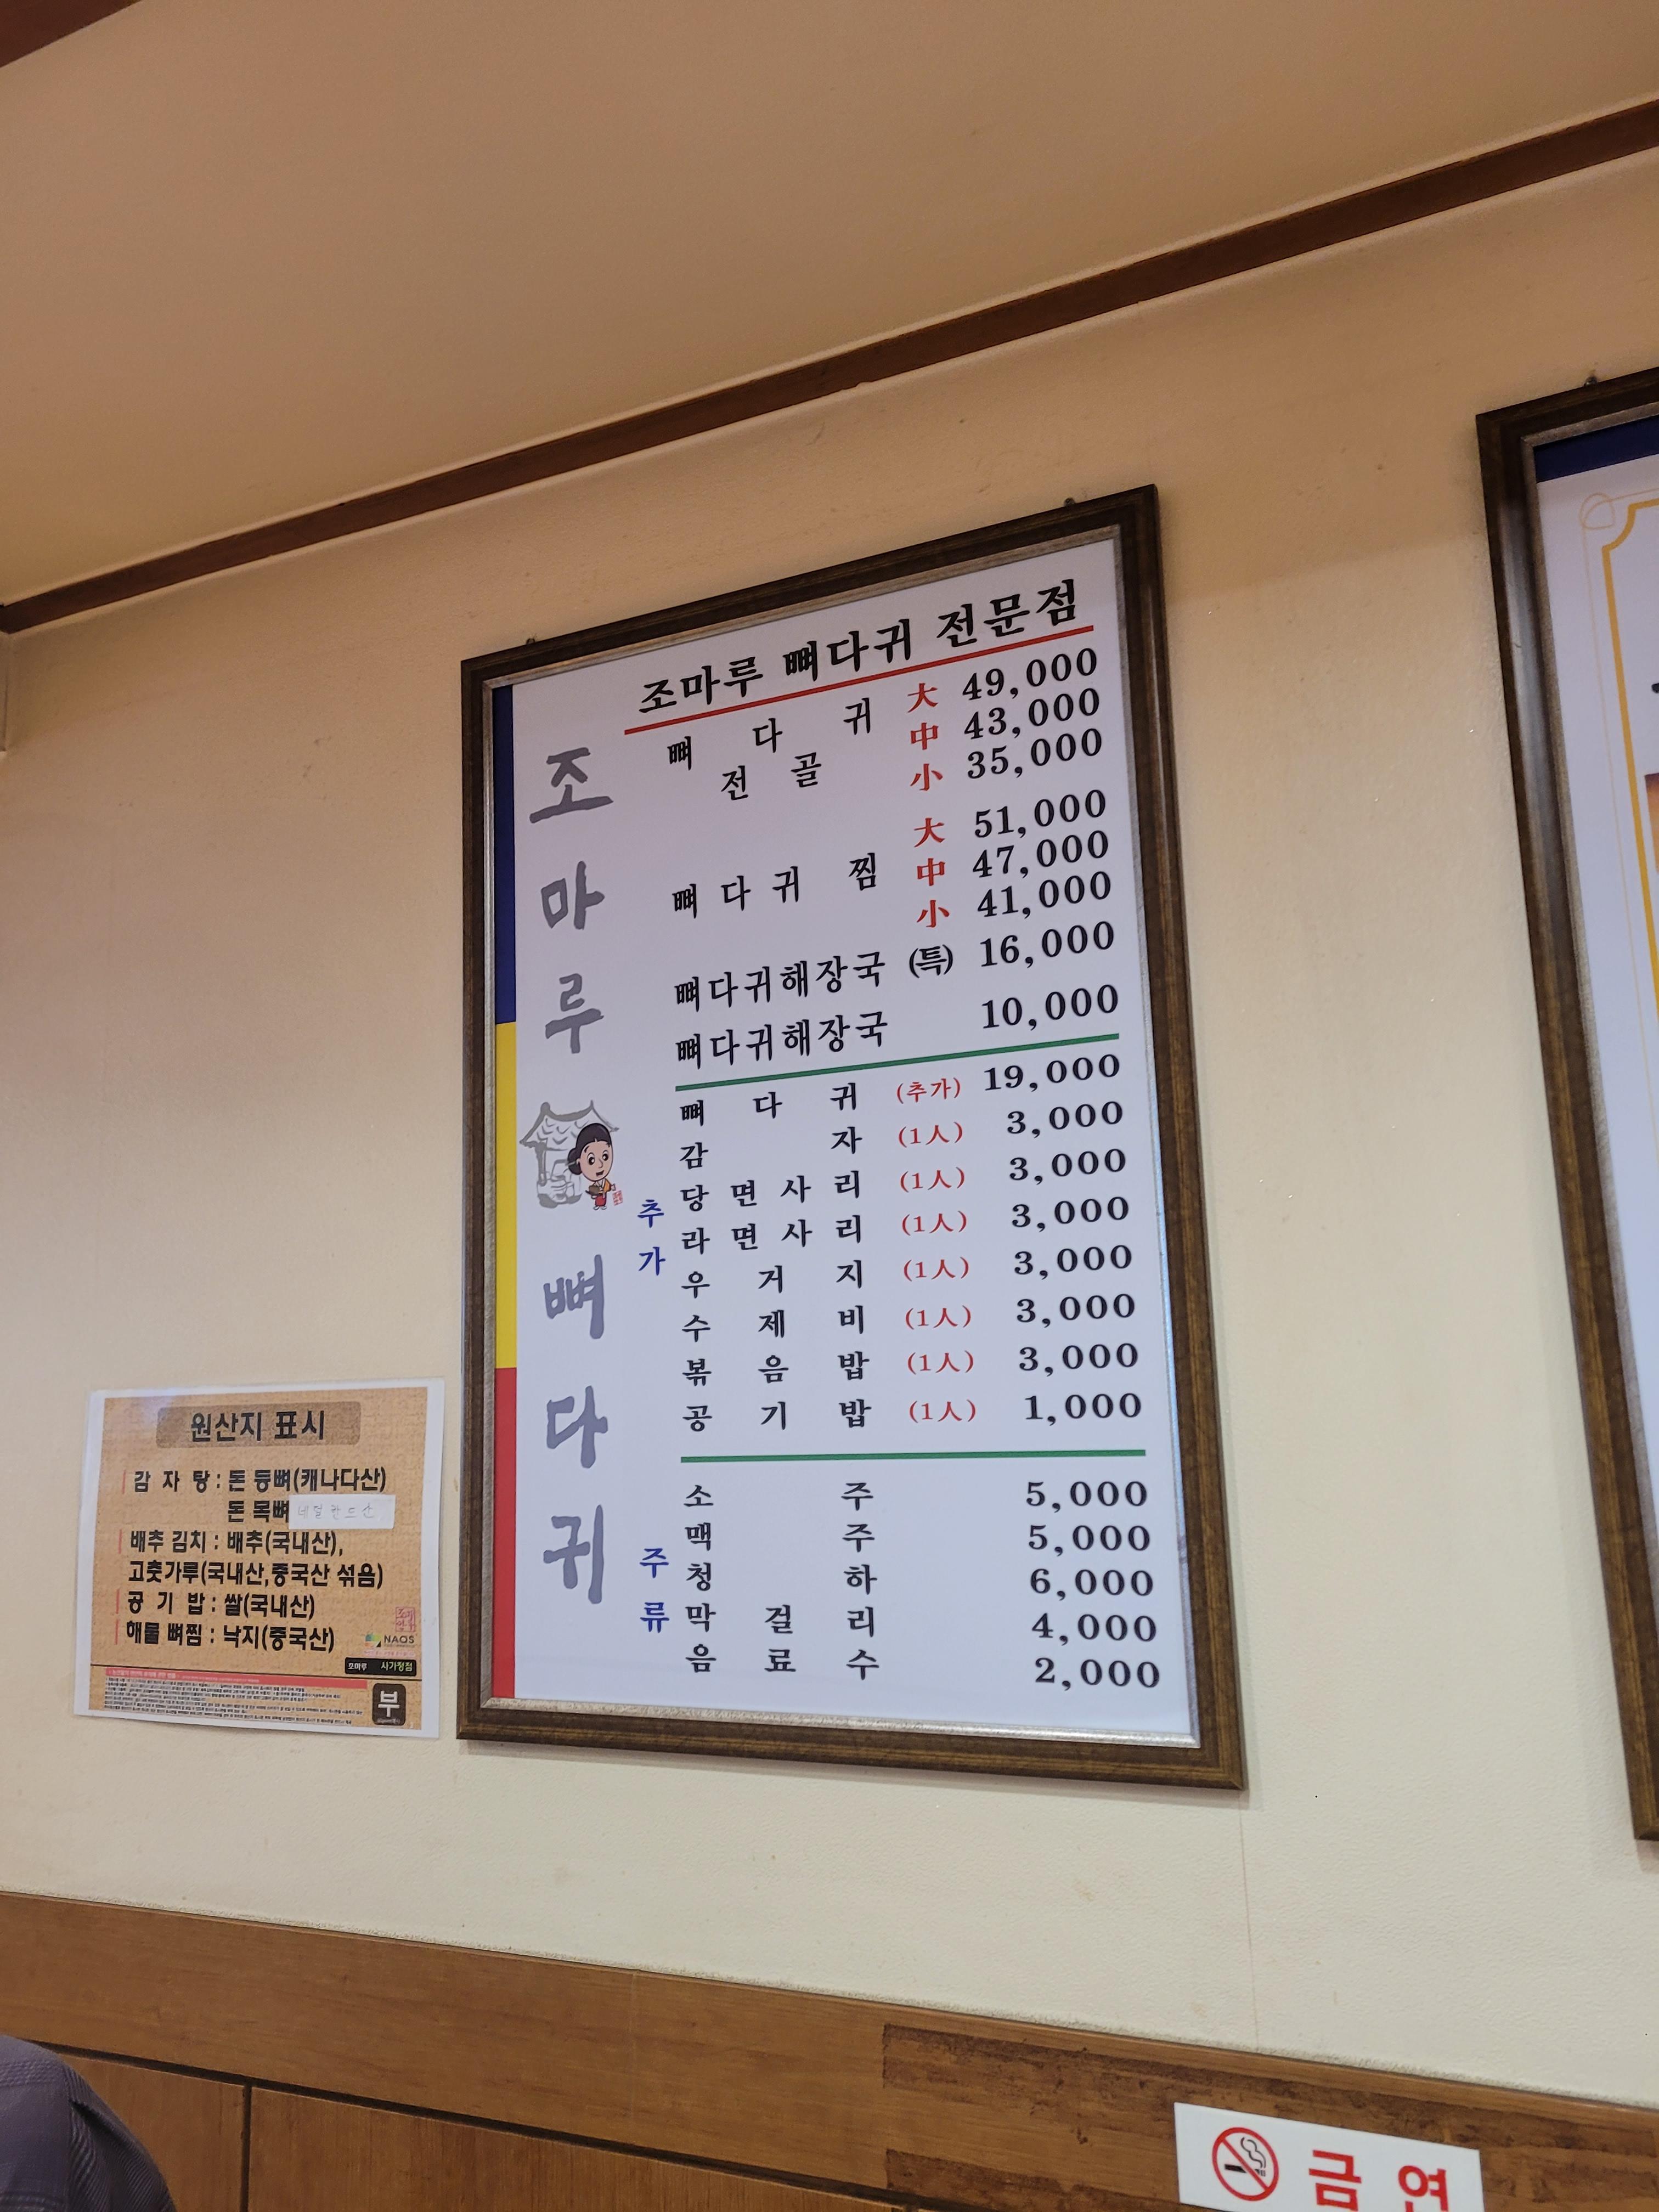 조마루 뼈다귀 전문점
뼈다귀 전골 大 49,000
中 43,000
小 35,000
뼈다귀 찜 大 51,000
中 47,000
小 41,000
뼈다귀해장국 (특) 16,000
뼈다귀해장국 10,000
추가
뼈다귀 (추가) 19,000
감자 (1人) 3,000
당면사리 (1人) 3,000
라면사리 (1人) 3,000
우거지 (1人) 3,000
수제비 (1人) 3,000
볶음밥 (1人) 3,000
공기밥 (1人) 1,000
주류
소주 5,000
맥주 5,000
청하 6,000
막걸리 4,000
음료수 2,000
조마루
뼈다귀
원산지 표시
감자탕 : 돈 등뼈(캐나다산)
돈 목뼈 네덜란드산
배추 김치 : 배추(국내산),
고춧가루(국내산,중국산 섞음)
공기밥 : 쌀(국내산)
해물 뼈찜 : 낙지(중국산)
NAQS
조마루 사가정점
부
금연